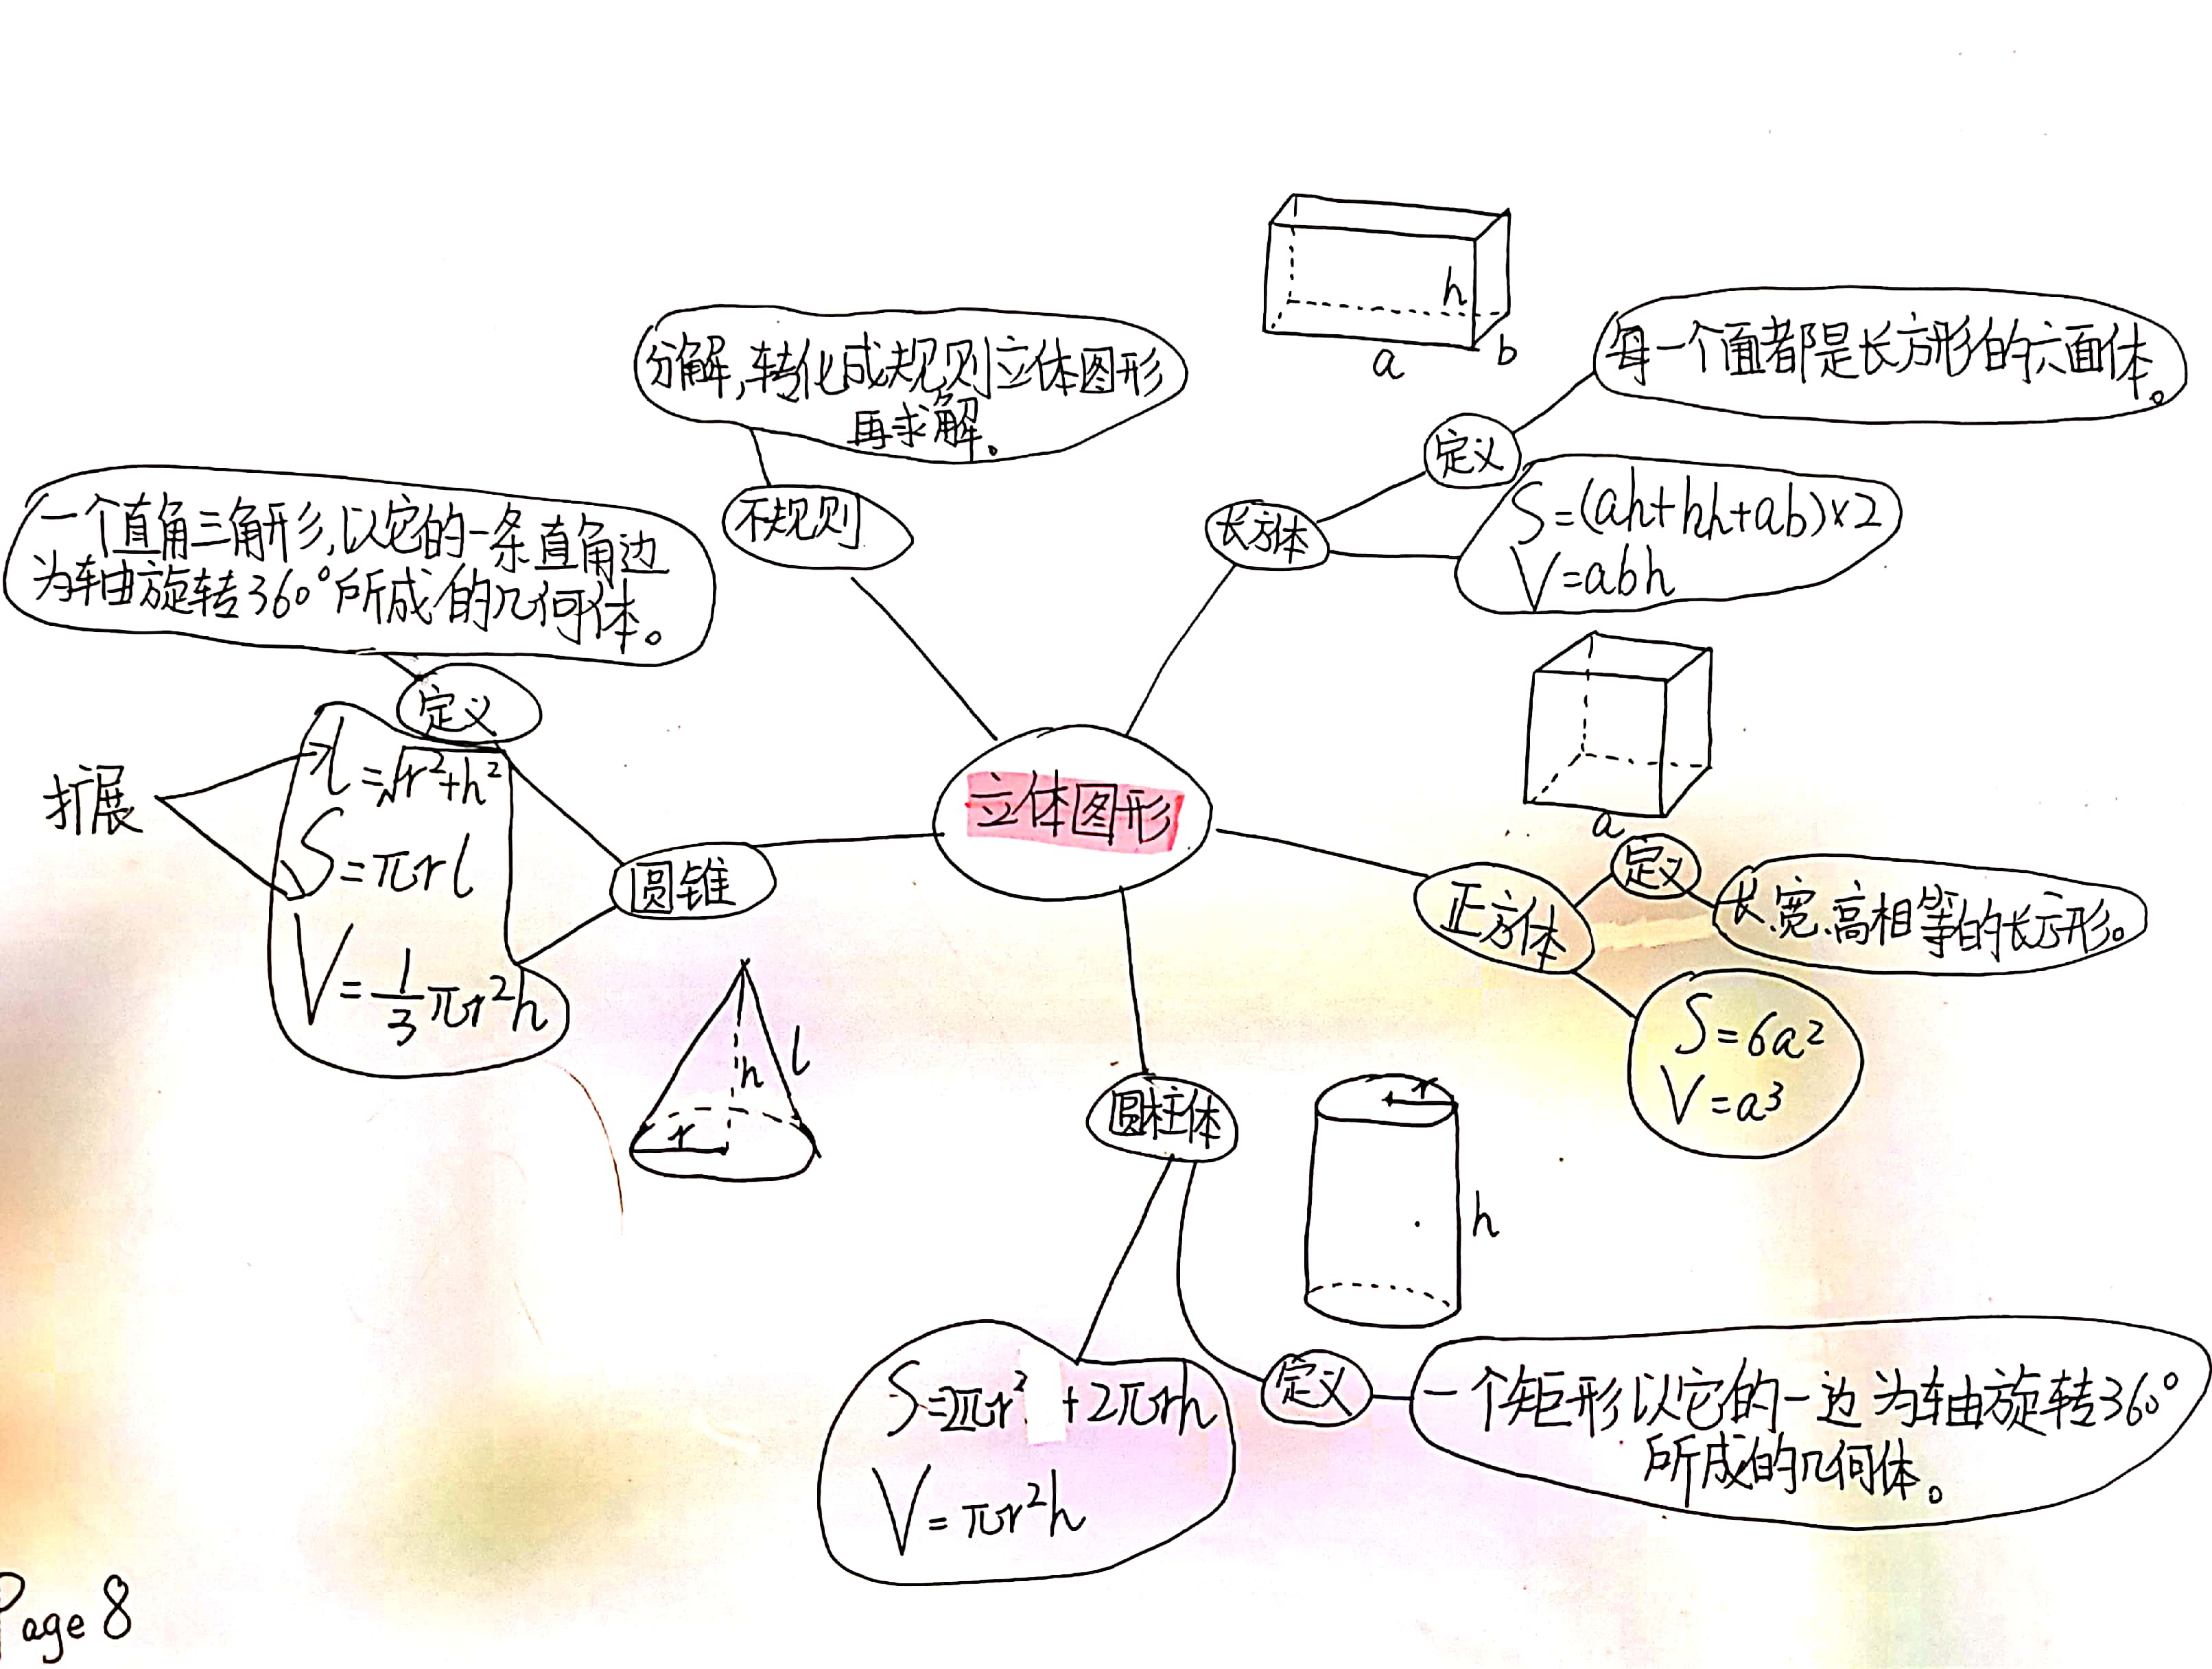 立体图形
长方体
定义
每一个面都是长方形的六面体。
S=(ah+bh+ab)×2
V=abh
h
a
b
正方体
定义
长、宽、高相等的长方形。
S=6a²
V=a³
a
圆柱体
定义
一个矩形以它的一边为轴旋转360°
所成的几何体。
S=2πr² +2πrh
V=πr²h
r
h
圆锥
定义
一个直角三角形,以它的一条直角边
为轴旋转360°所成的几何体。
扩展
l=√r²+h²
S=πrl
V=1/3πr²h
h
l
r
不规则
分解,转化成规则立体图形
再求解。
Page 8